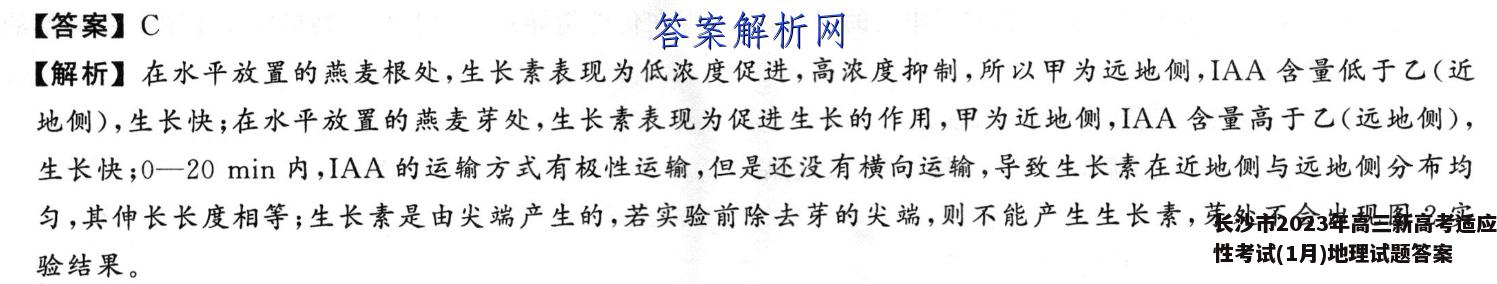 【答案】C
答案解析网
【解析】在水平放置的燕麦根处,生长素表现为低浓度促进,高浓度抑制,所以甲为远地侧,IAA 含量低于乙(近
地侧),生长快;在水平放置的燕麦芽处,生长素表现为促进生长的作用,甲为近地侧,IAA 含量高于乙(远地侧),
生长快;0—20 min 内,IAA 的运输方式有极性运输,但是还没有横向运输,导致生长素在近地侧与远地侧分布均
匀,其伸长长度相等;生长素是由尖端产生的,若实验前除去芽的尖端,则不能产生生长素,芽处不会出现图2实
验结果。
长沙市2023年高三新高考适应
性考试(1月)地理试题答案